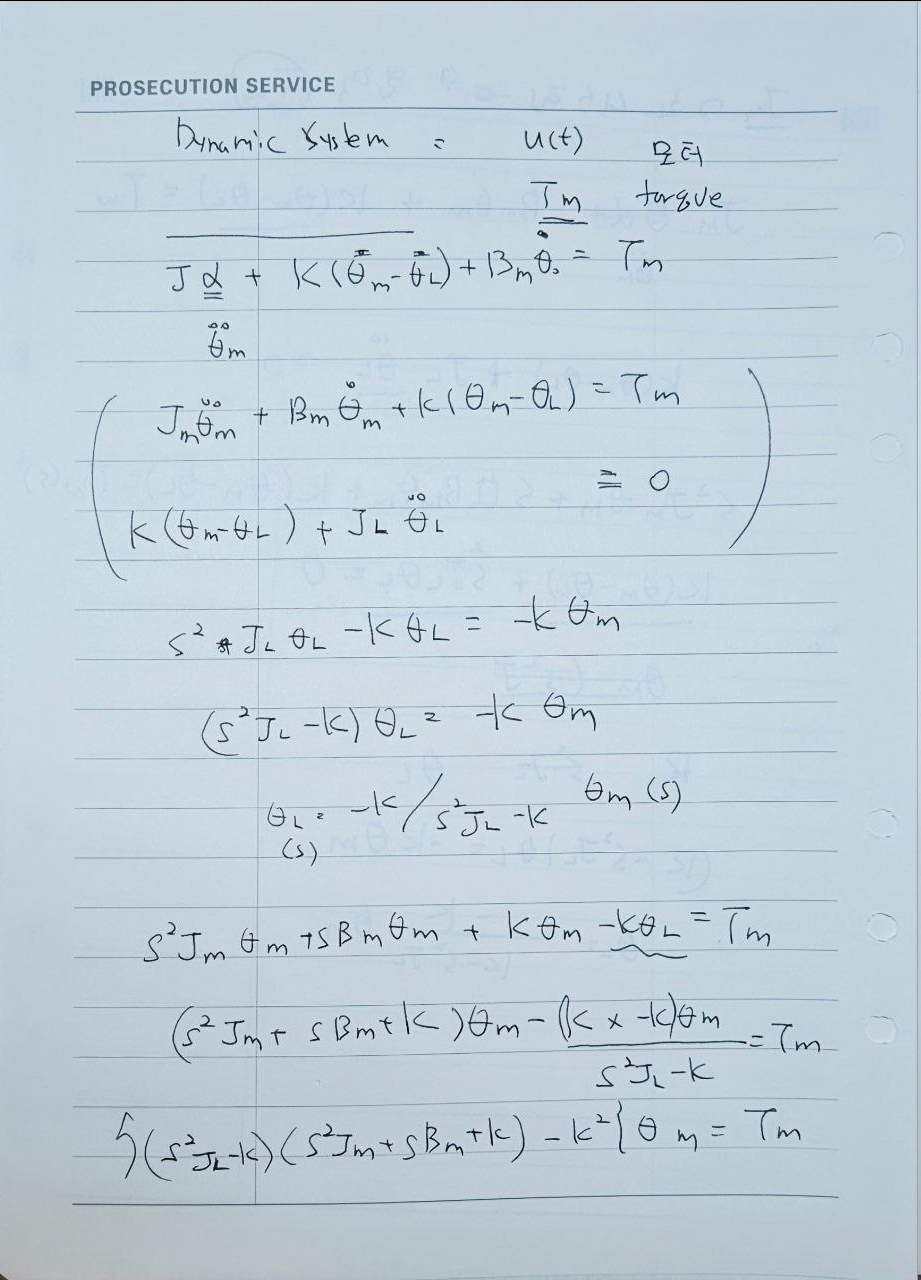 PROSECUTION SERVICE
Dynamic System = u(t) 모터
Tm torque
J α + K(θ̈m-θ̈L) + Bm θ̇. = Tm
θ̈m
Jmθ̈m + Bm θ̇m + K(θm-θL) = Tm
= 0
K(θm-θL) + JL θ̈L
s² * JL θL - K θL = -K θm
(s² JL - K) θL = -K θm
θL = -K / s² JL - K θm (s)
(s)
s² Jm θm + sBm θm + K θm - KθL = Tm
(s² Jm + s Bm + K) θm - (K x -K)θm = Tm
s² JL - K
{(s² JL-K)(s² Jm + sBm + K) - K²} θm = Tm